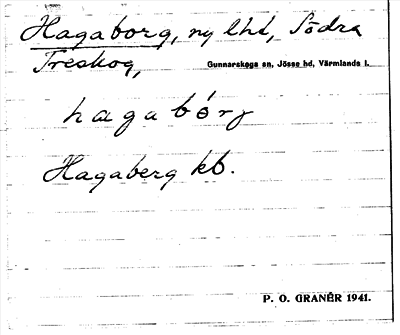 Hagaborg, ny lht, Södra
Treskog,
Gunnarskogs sn, Jösse hd, Värmlands l.
hagabórj
Hagaberg kb.
P. O. GRANÉR 1941.